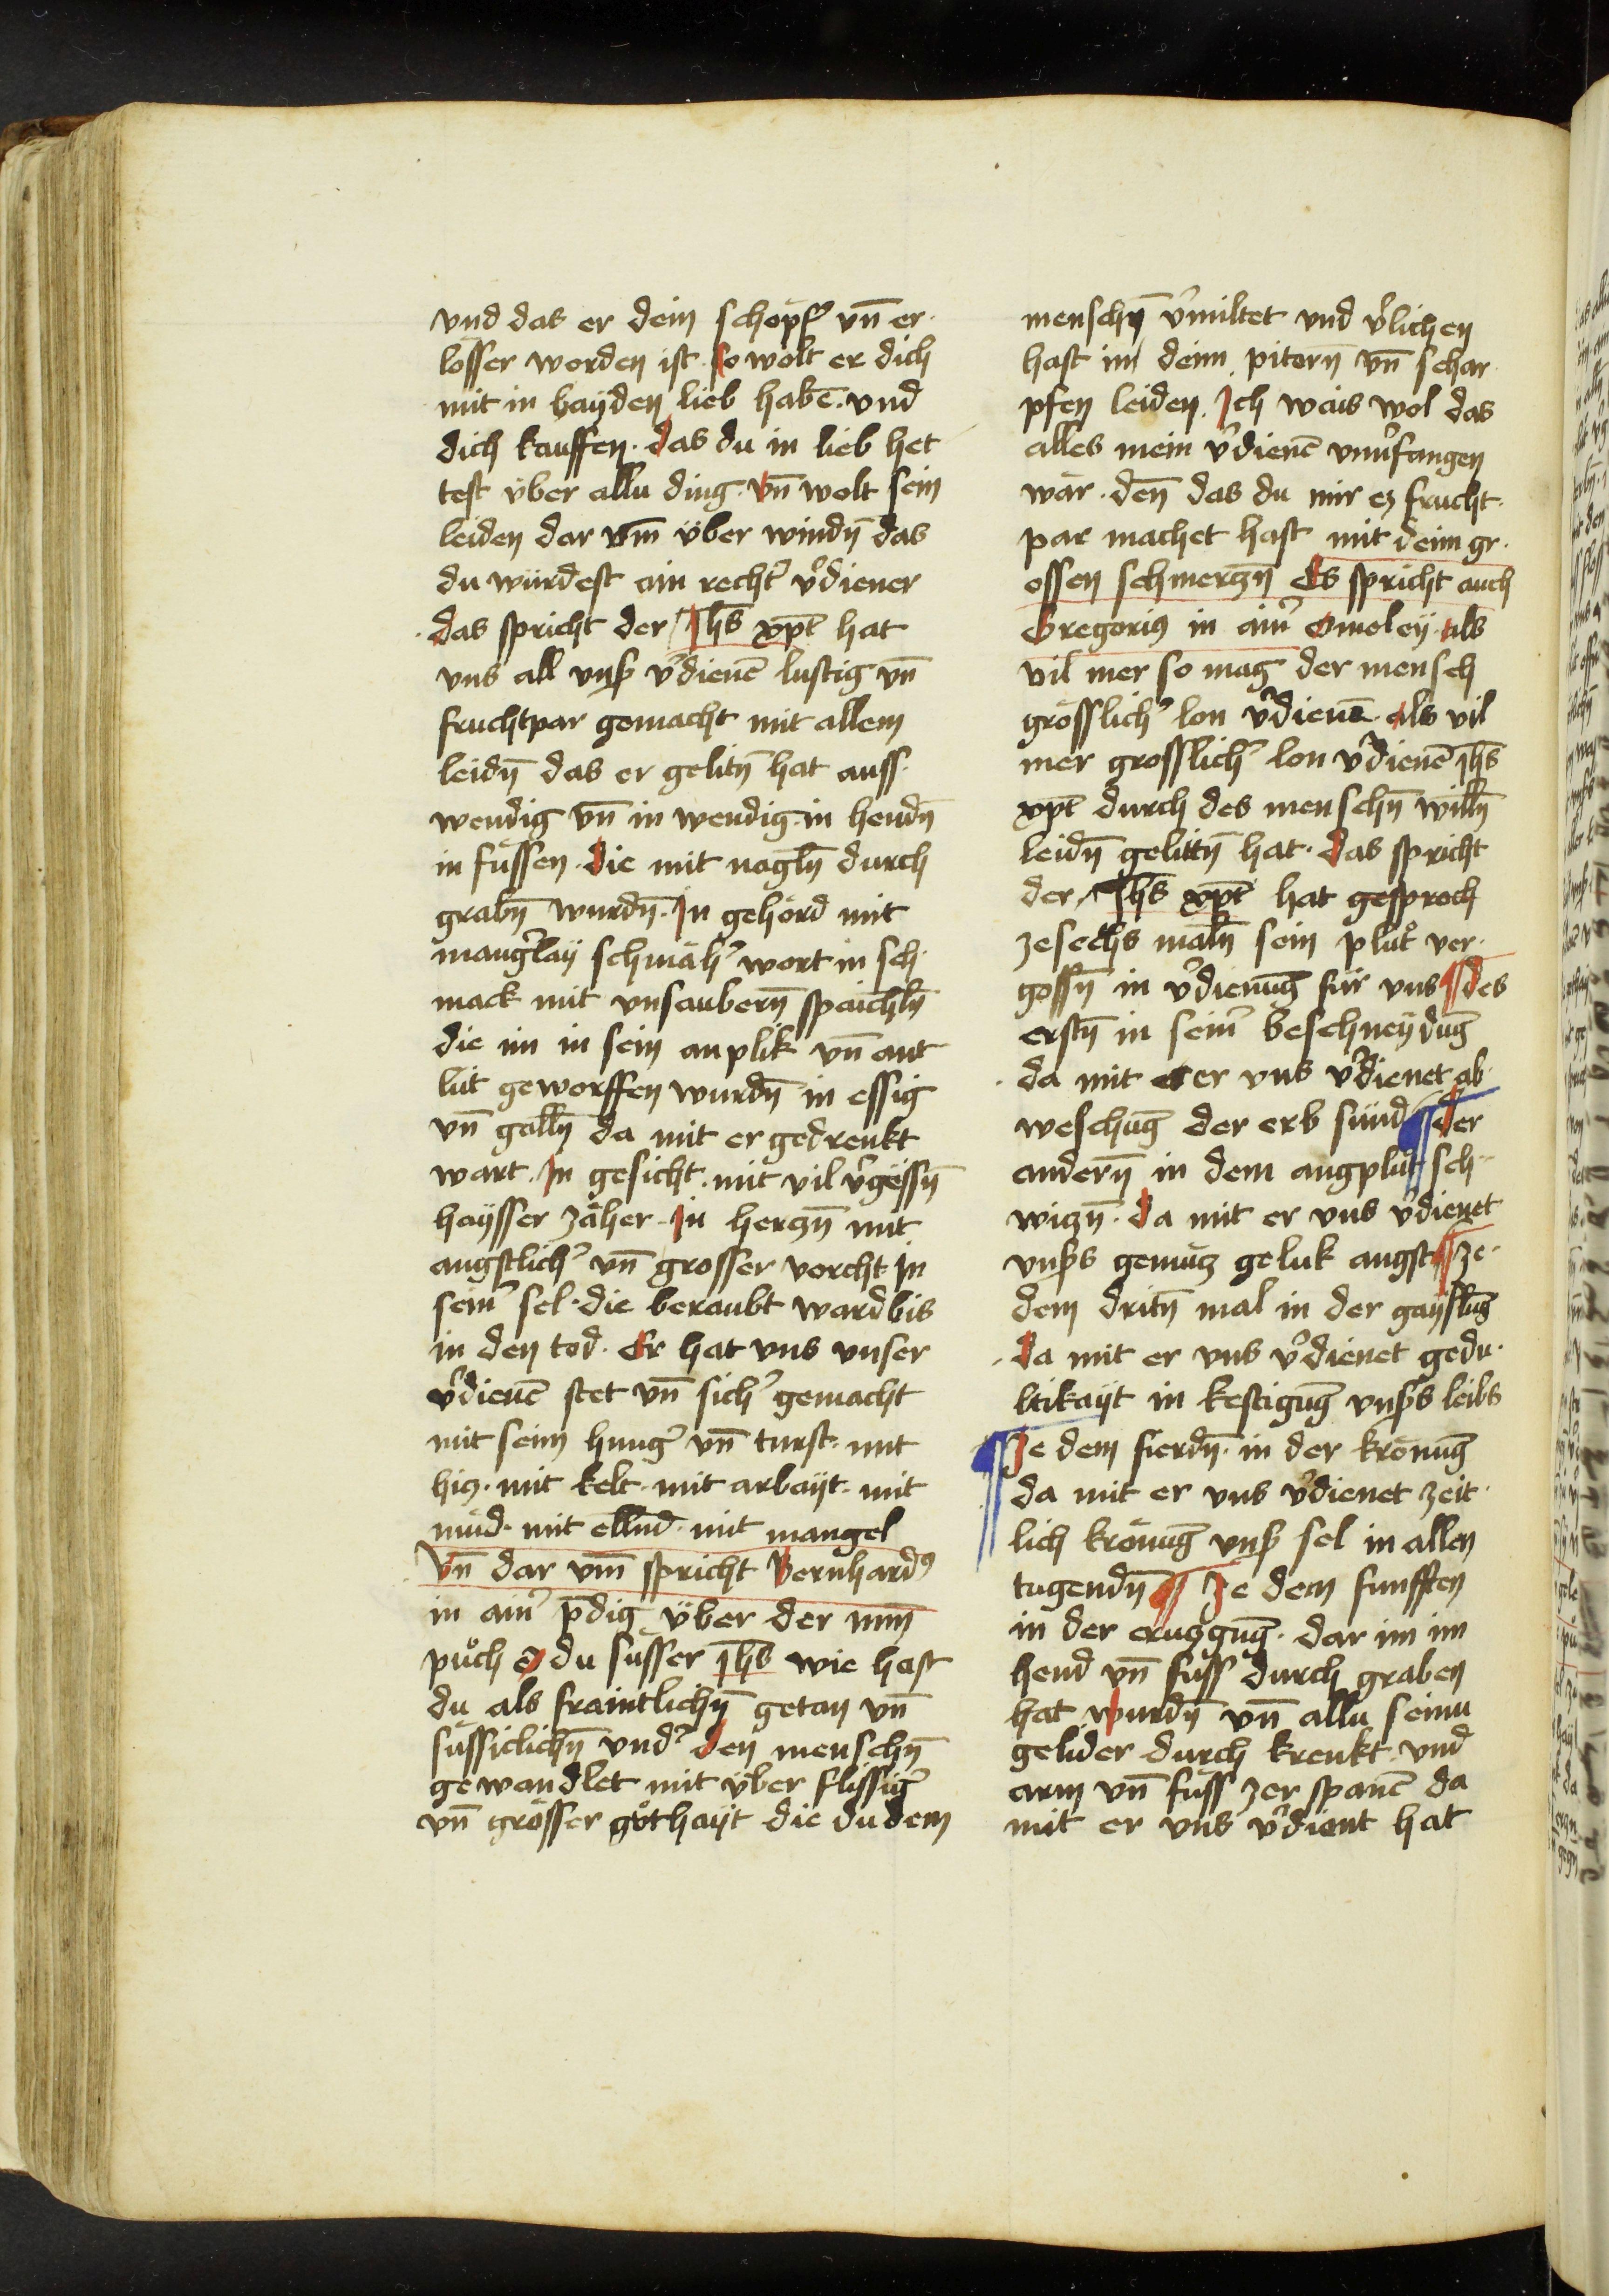 vnd das er dein schöpfʼ vn̄ er·
lösser worden ist · so wolt er dich
mit in bayden lieb habē · vnd
dich kauffen · das du in lieb het
test über allu ding · vn̄ wolt sein
leiden dar vm̄ über windn̄ das
du würdest ain rechtʼ vʼdiener
das spricht der Jhs̄ xp̄t hat
vns all vnsʼ vʼdienē lustig vn̄
fruchtpar gemacht mit allem
leidn̄ das er gelitn̄ hat auss·
wendig vn̄ in wendig · in hendn̄
in füssen · die mit nagln̄ durch
grabn̄ wurdn̄ · Jn gehörd mit
mangʼlay schmächʼ wort in sch·
mack mit vnsaubern̄ spaichln̄
die im in sein anplik vn̄ ant
lüt geworffen wurdn̄ in essig
vn̄ galln̄ da mit er gedrenkt
wart · Jn gesicht · mit vil vʼgëssn̄
haysser zäher · Jn herczn̄ mit
angstlichʼ vn̄ grosser vorcht Jn
seinʼ sel · die beraubt ward bis
in den tod · Er hat vns vnser
vʼdienē stet vn̄ sichʼ gemacht
mit seim hungʼ vn̄ turst · mit
hicz · mit kelt · mit arbayt · mit
müd · mit ellend · mit mangel
Vn̄ dar vm̄ spricht Bernhardꝰ
in ainʼ p̄dig über der minn̄
püch O du süsser Jhs̄ wie hast
du als fraintlichn̄ getan vn̄
süssiclichn̄ vndʼ den menschn̄
gewandlet mit über flissigʼ
vn̄ grösser gůthayt die du dem
menschn̄ vʼmiltet vnd vʼlichen
hast im deim pitern̄ vn̄ schar
pfen leiden · Jch wais wol das
alles mein vʼdienē vnuʼfangen
wär · den̄ das du mir ez frucht·
par machet hast mit deim gr·
ossen schmerczn̄ Es spricht auch
Gregoriꝰ in ainʼ Omoley · als
vil mer so mag der mensch
grösslichʼ lon vʼdienē · als vil
mer grosslichʼ lon vʼdienē Jhs̄
xp̄t durch des menschn̄ willn̄
leidn̄ gelittn̄ hat · das spricht
der · Jhs̄ xp̄t hat gesproch
ze sechs maln̄ sein plůt ver·
gossn̄ in vʼdienuḡ für vns ¶ des
erstn̄ in seinʼ beschneyduḡ
da mit er vns vʼdienet ab·
weschuḡ der erb sünd ¶ der
andern̄ in dem angplůt sch·
wiczn̄ · da mit er vns vʼdienet
vnsʼs gemücz geluk angst ¶ ze·
dem dritn̄ mal in der gaysluḡ
da mit er vns vʼdienet gedu·
ltikayt in kestiguḡ vnsʼs leibs
¶ Ze dem fierdn̄ · in der krönuḡ
da mit er vns vʼdienet zeit·
lich krönuḡ vnsʼ sel in allen
tugendn̄ ¶ Ze dem funfften
in der crüczguḡ · dar im im
hend vn̄ füss durch graben
hat wurdn̄ vn̄ allu seinu
gelider durch krenkt · vnd
arm vn̄ füss zer spanē da
mit er vns vʼdient hat